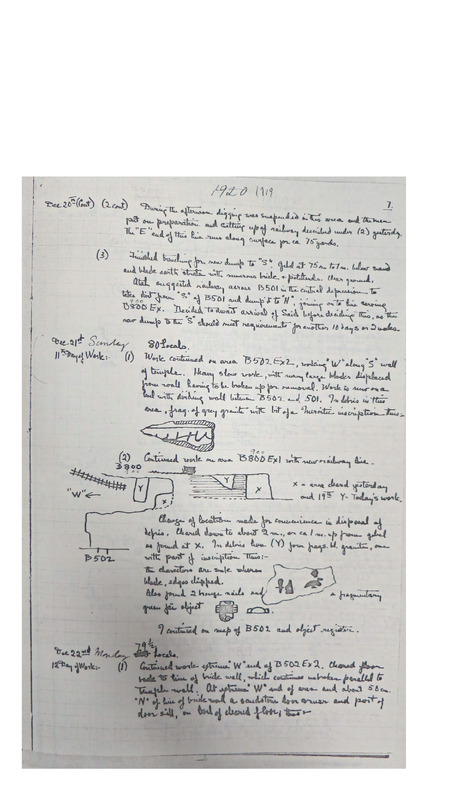 1920 1919
7.
Dec 20th (Cont) (2 cont) During the afternoon digging was suspended in this area and the men
put on preparation and setting up of railway described under (2) yesterday.
The "E" end of this line runs along surface for ca 75 yards.
(3) Finished trenching for new dump to "S". Gebel at 75 cm to 1 m. below sand
and black earth strata with numerous bricks & potsherds. Clear ground.
suggested railway across B501 in the central depression to
take dirt from "S" of B501 and dump to "N", joining on to line serving
B800 Ex. Decided to await arrival of Said before deciding this, as the
new dump to the "S" should meet requirements for another 10 days or 2 weeks.
Dec 21st Sunday 80 Locals.
11th Day of Work:- (1) Work continued on area B502 Ex2, working "W" along "S" wall
of temple. Heavy slow work, with many large blocks displaced
from wall having to be broken up for removal. Work is now on a
level with dividing wall between B502 and 501. In debris in this
area, frag. of grey granite with bit of a Meroitic inscription thus:-
(2) Continued work on area B800 Ex1 with new railway line.
900
B800
Y
X
"W"
B502
x = area cleared yesterday
and 19th Y - Today's work.
Change of location made for convenience in disposal of
debris. Cleared down to about 2 m, or ca 1 m. up from gebel
as found at X. In debris here (Y) four frags. bl. granite, one
with part of inscription thus:-
the characters are sunk
block, edges chipped.
Also found 2 bronze nails and a fragmentary
green object
I continued on map of B502 and object register.
Dec 22nd Monday 79½ Locals.
12th Day of Work:- (1) Continued work extreme "W" end of B502 Ex2. Cleared floor
back to line of brick wall, which continues unbroken parallel to
temple wall. At extreme "W" end of area and about 50 cm.
"N" of line of brick wall a sandstone door corner and part of
door sill, on level of cleared floor, thus:-